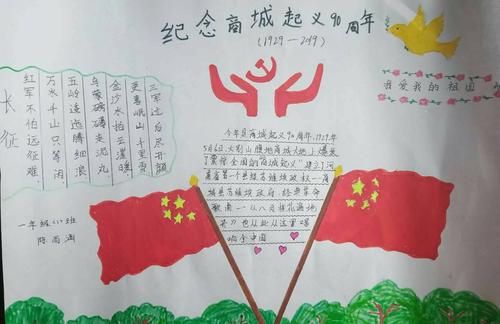 纪念商城起义90周年
(1929—2019)
我爱我的祖国
长征
红军不怕远征难,
万水千山只等闲
五岭逶迤腾细浪
乌蒙磅礴走泥丸
金沙水拍云崖暖
更喜岷山千里雪
三军过后尽开颜
一年级<1>班
今年是商城起义90周年,1929年
5月6日,大别山腹地商城大地上爆发
了震惊全国的商城起义"建立了河
南省第一个县级苏维埃政权—商
城县苏维埃政府,经典革命
歌曲—《八月桂花遍地
开》也从此从这里唱
响全中国